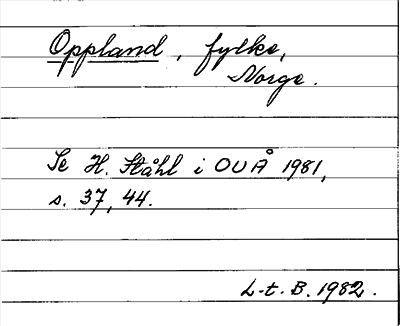 Oppland, fylke,
Norge.
Se H. Ståhl i OUÅ 1981,
s. 37, 44.
L-t. B. 1982.